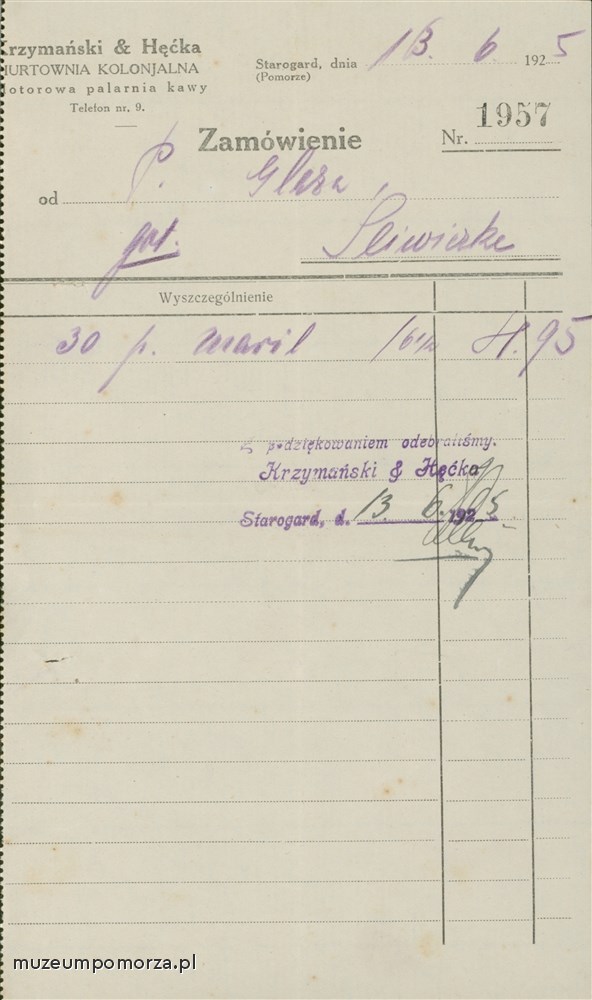 Krzymański & Hęćka
HURTOWNIA KOLONJALNA
Motorowa palarnia kawy
Telefon nr. 9.
Starogard, dnia 13. 6. 1925
(Pomorze)
Zamówienie
Nr. 1957
od P. Glaza,
got. Sliwiczke
Wyszczególnienie
30 p. 16½ 4.95
Z podziękowaniem odebraliśmy.
Krzymański & Hęćka
Starogard, d. 13 6. 1925
muzeumpomorza.pl